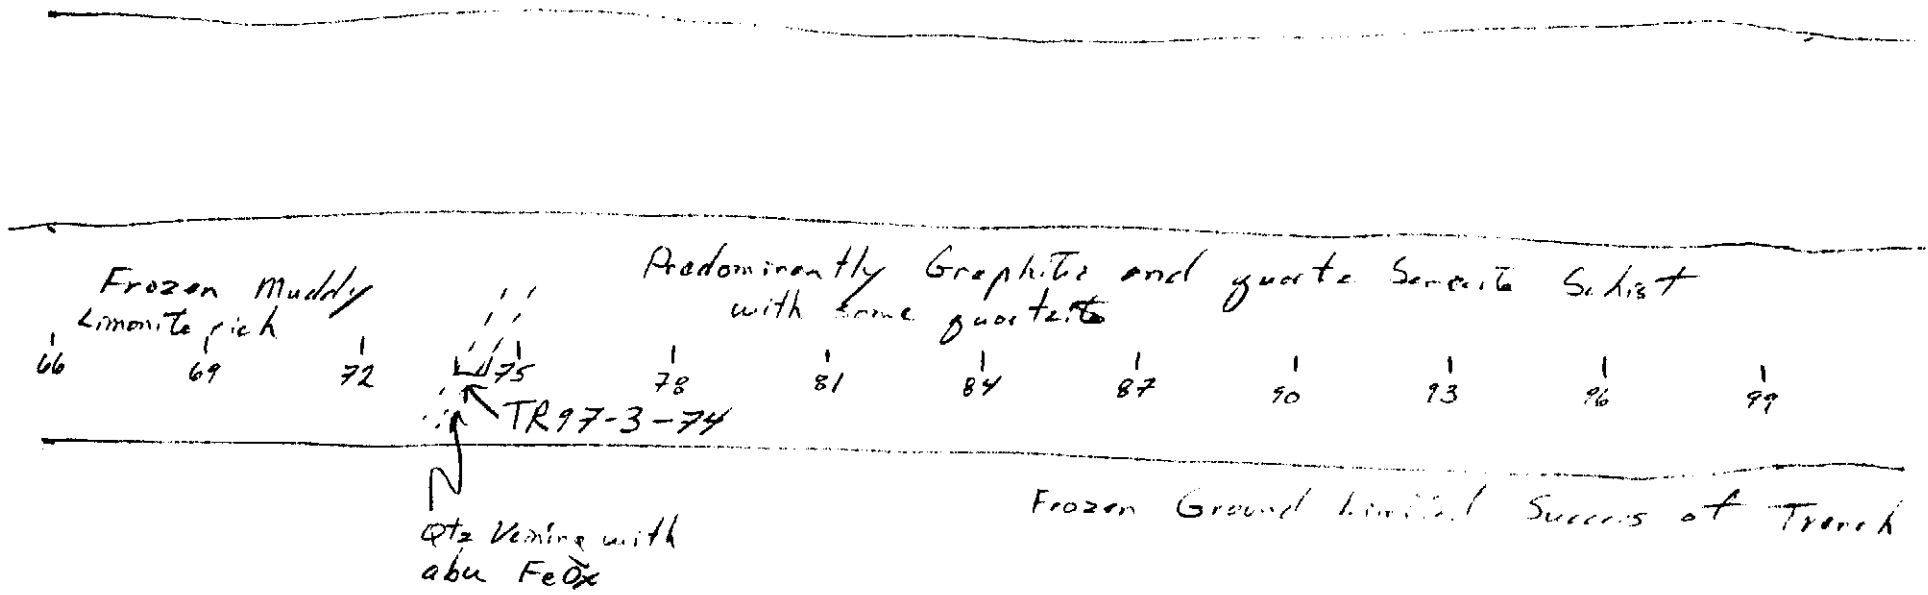 Frozen Muddy
Limonite rich
Predominently Graphite and quartz Sericite Schist
with some quartzite
66 69 72 75 78 81 84 87 90 93 96 99
TR97-3-74
Qtz Veining with
abu FeOx
Frozen Ground Limited Success of Trench